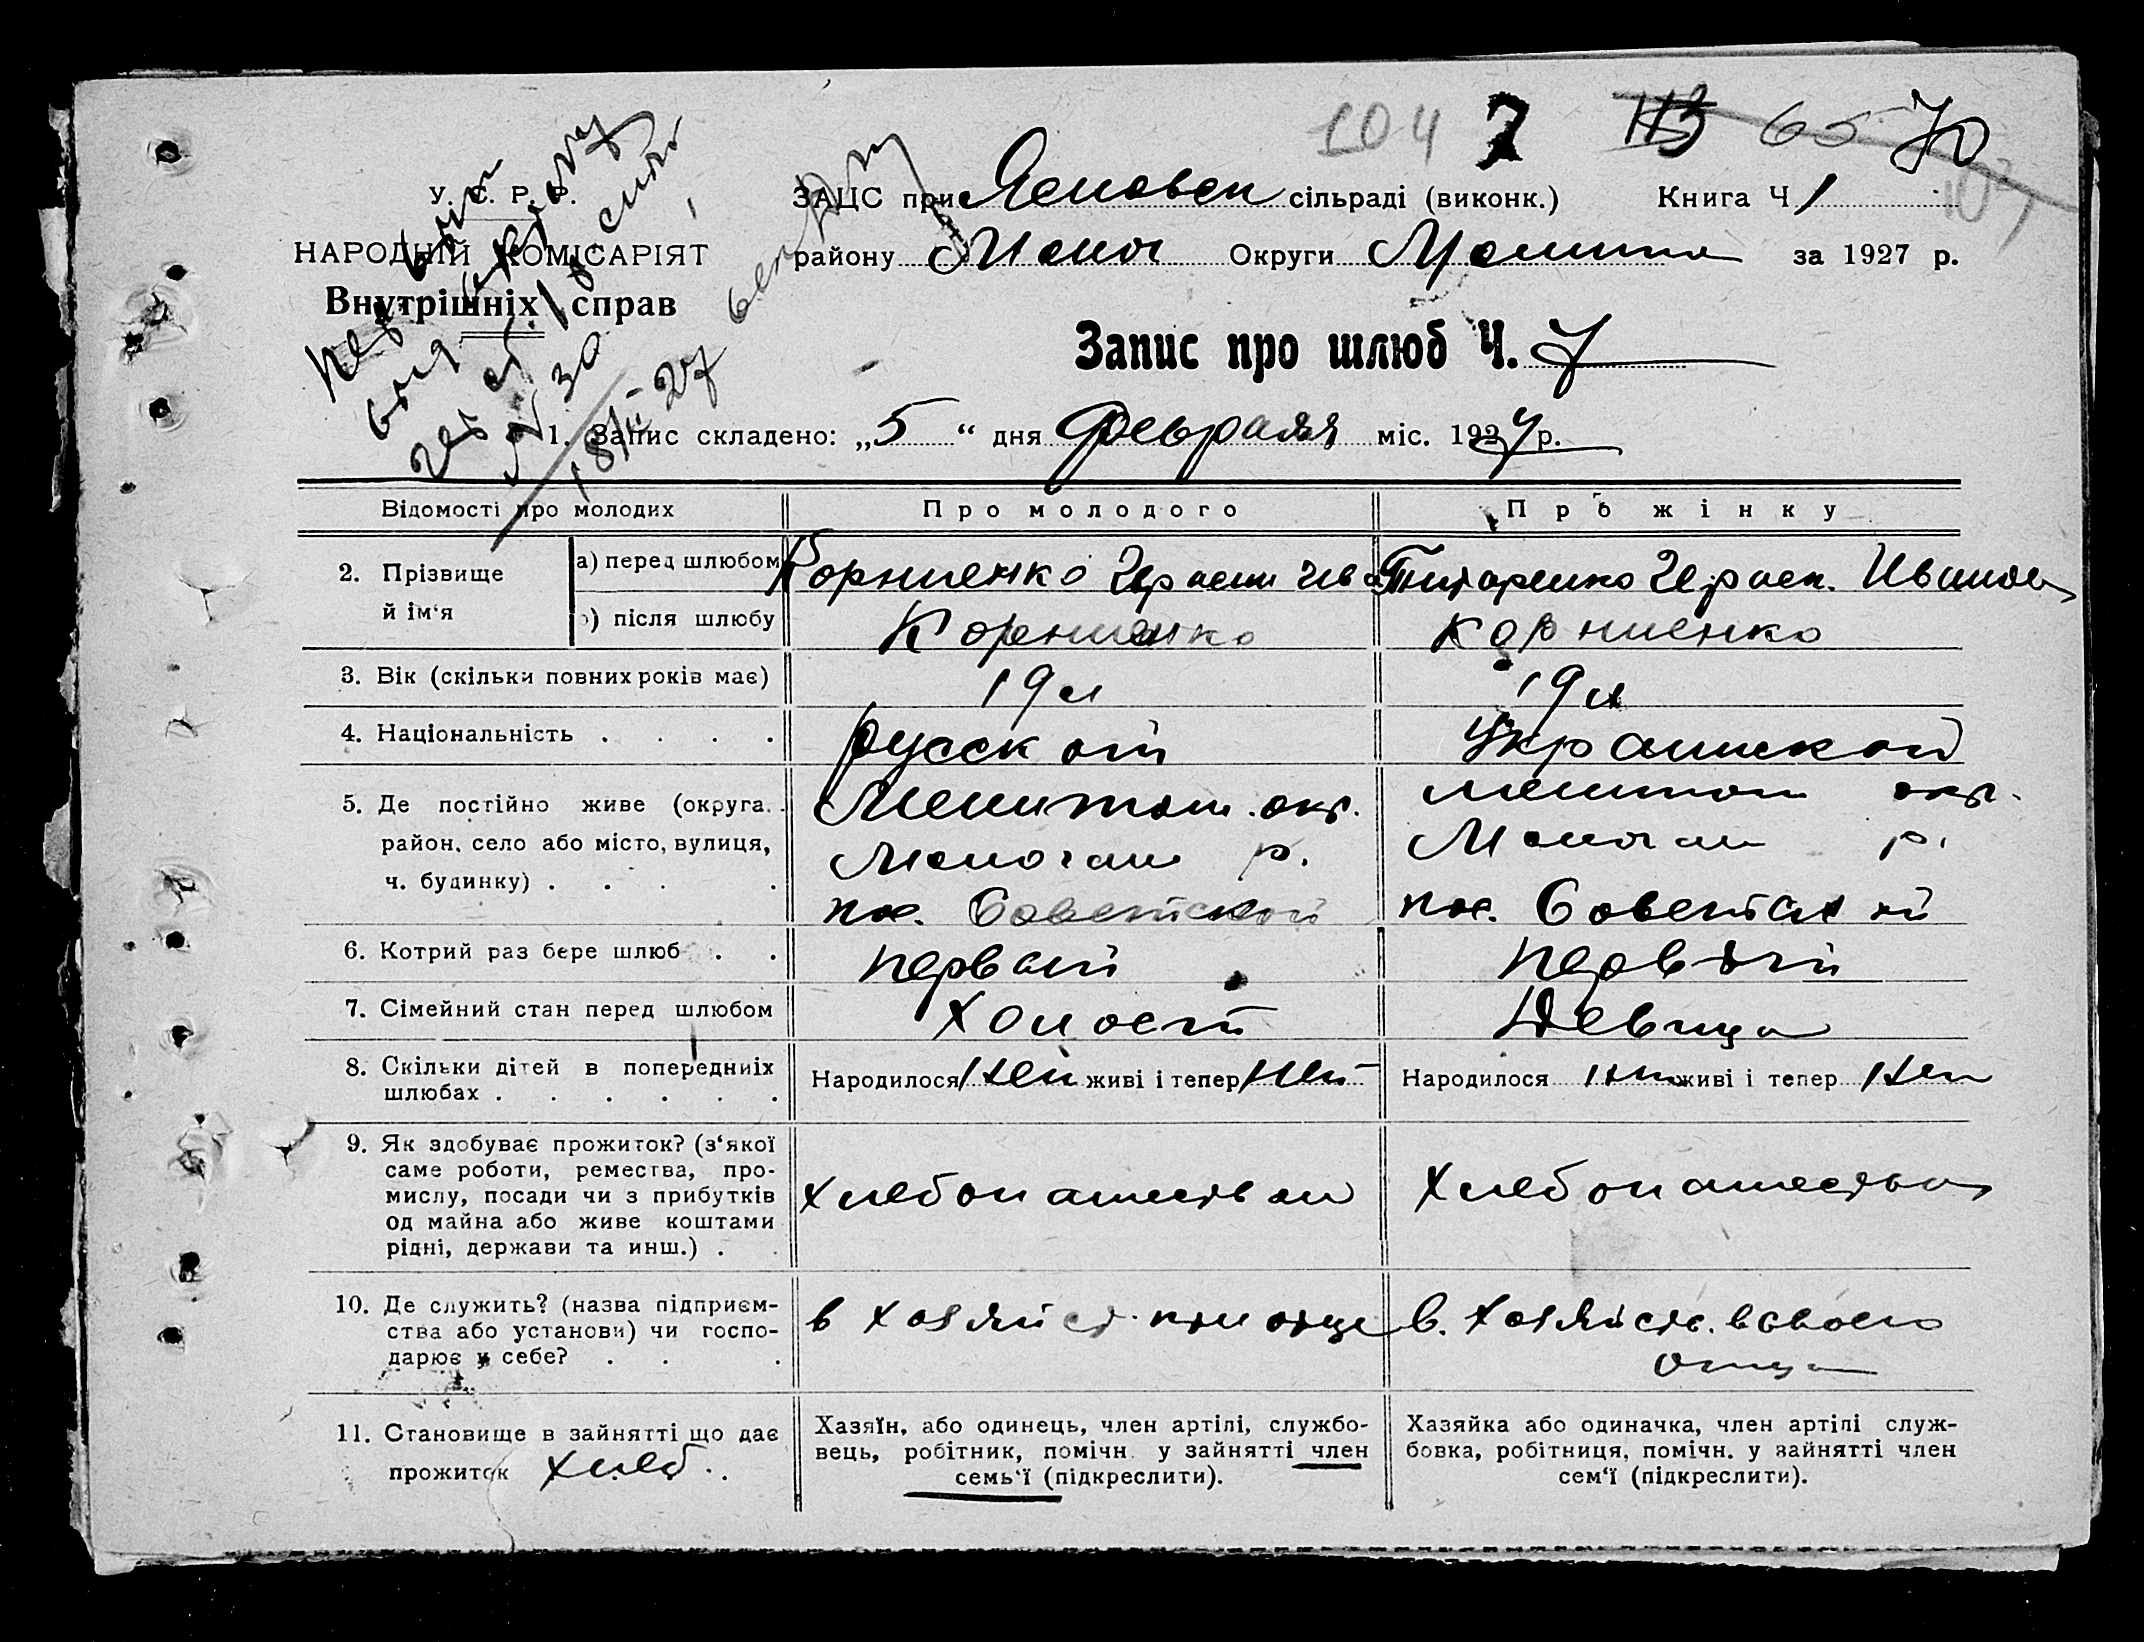 104 7 113 65 70
У. С. Р. Р. ЗАЦС при сільраді (виконк.) Книга Ч 1
НАРОДНІЙ КОМІСАРІЯТ району Округи за 1927 р.
Внутрішніх справ
Запис про шлюб Ч. 7
№ 30
18/II 27
1. Запис складено: „5“ дня Февраля міс. 1927 р.
Відомості про молодих Про молодого Про жінку
2. Прізвище й ім‘я а) перед шлюбом Корниенко Герасим Ив Титаренко Гераск. Иванов
б) після шлюбу Корниенко Корниенко
3. Вік (скільки повних років має) 19 л 19 л
4. Національність . . . . русской Украинской
5. Де постійно живе (округа. Мелитоп. окр. Мелитоп окр.
район, село або місто, вулиця, р. р.
ч. будинку) . . . . пос. Советской пос. Советский
6. Котрий раз бере шлюб . . первый первый
7. Сімейний стан перед шлюбом Холост Девица
8. Скільки дітей в попередніх шлюбах . . . . . . Народилося нет живі і тепер нет Народилося нет живі і тепер нет
9. Як здобуває прожиток? (з‘якої
саме роботи, ремества, про-
мислу, посади чи з прибутків хлебопашеством хлебопашество
од майна або живе коштами
рідні, держави та инш.) .
10. Де служить? (назва підприєм- в хозяйст. при отце в. хозяйств. в своего
ства або установи) чи госпо- отца
дарює у себе? . . .
11. Становище в зайнятті що дає Хазяїн, або одинець, член артілі, службо- Хазяйка або одиначка, член артілі служ-
прожиток хлеб.. вець, робітник, помічн. у зайнятті член бовка, робітниця, помічн. у зайнятті член
семь‘ї (підкреслити). сем‘ї (підкреслити).